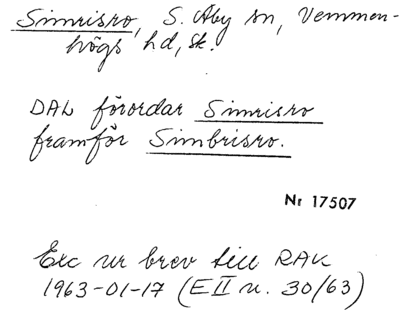 Simrisro, S. Åby sn, Vemmen-
högs hd, Sk.
DAL förordar Simrisro
framför Simbrisro.
Nr 17507
Exc ur brev till RAK
1963-01-17 (E II n. 30/63)